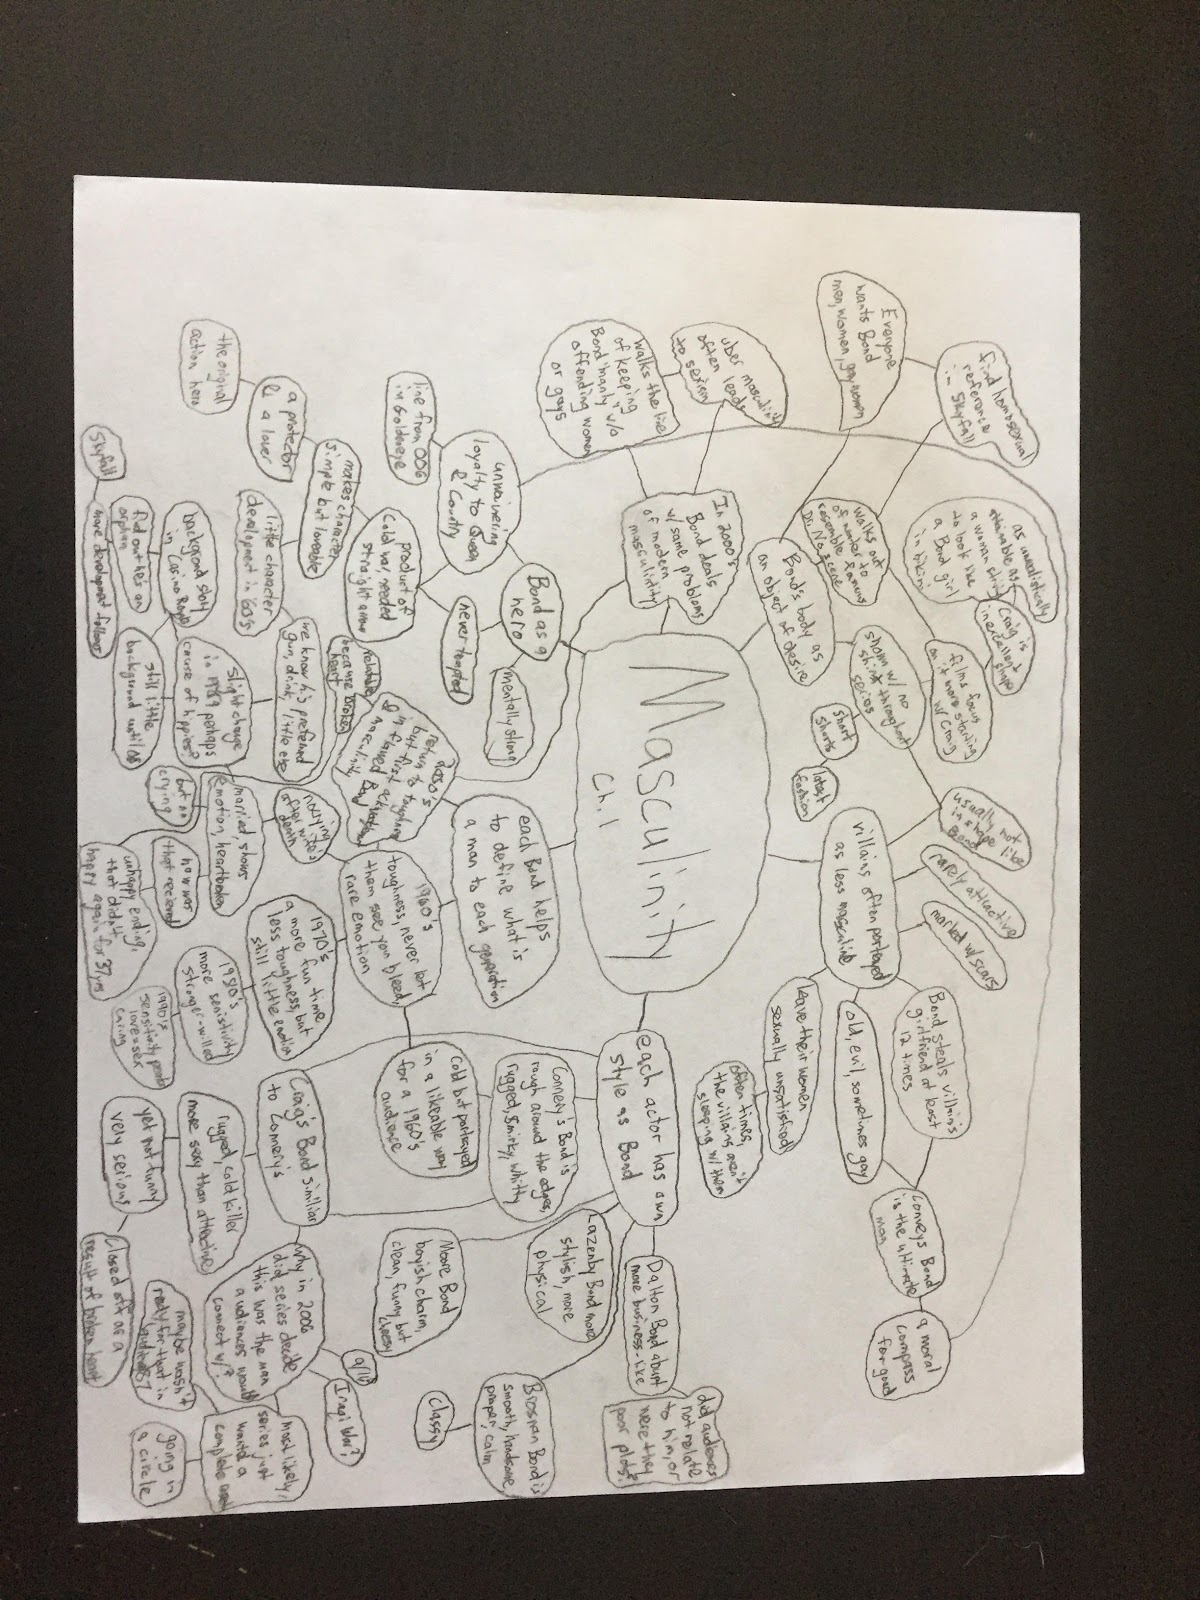 Masculinity
Ch. 1
Bond as a
hero
mentally strong
never tempted
unwavering
loyalty to Queen
& Country
line from 006
in Goldeneye
product of
cold war, needed
straight arrow
makes character
simple but loveable
a protector
& a lover
the original
action hero
In 2000's
Bond deals
w/ same problems
of modern
masculinity
uber masculinity
often leads
to sexism
Walks the line
of keeping
Bond "manly" w/o
offending women
or gays
Bond's body as
an object of desire
Everyone
wants Bond
men, women, gay women
find homosexual
reference
in Skyfall
Walks out
of water to
resemble famous
Dr. No scene
as unrealistically
attainable as
a woman trying
to look like
a Bond girl
in bikini
Craig is
in excellent
shape
films focus
on it more starting
w/ Craig
shown w/ no
shirt throughout
series
short
shorts
latest
fashion
villains often portrayed
as less masculine
usually not
in shape like
Bond
rarely attractive
marked w/ scars
Bond steals villain's
girlfriend at least
12 times
old, evil, sometimes gay
leave their women
sexually unsatisfied
often times,
the villains aren't
sleeping w/ them
Conveys Bond
is the ultimate
man
a moral
compass
for good
each actor has own
style as Bond
Connery's Bond is
rough around the edges,
rugged, smirky, whitty
cold but portrayed
in a likeable way
for a 1960's
audience
Craig's Bond similiar
to Connery's
rugged, cold killer
more sexy than attractive
yet not funny
very serious
closed off as a
result of broken heart
Why in 2006
did series decide
this was the man
audiences would
connect w/?
9/11?
Iraqi War?
maybe wasn't
ready for that in
most likely,
series just
wanted a
complete
going in
a circle
Moore Bond
boyish charm,
clean, funny but
cheesy
Lazenby Bond more
stylish, more
physical
Dalton Bond
more business-like
did audiences
not relate
to him, or
were they
poor plots?
Brosnan Bond is
smooth, handsome
proper, calm
Classy
each Bond helps
to define what is
a man to each generation
1960's
toughness, never let
them see you bleed,
rare emotion
1970's
a more fun time
less toughness, but
still little emotion
1980's
more sensitivity
stronger-willed
1990's
sensitivity
love & sex
caring
2000's
return to toughness
but first
in flawed
masculinity
relatable
because broken
heart
little character
development in '60's
we know his preferred
gun, drink, little etc
slight change
in 1969 perhaps
cause of hippies?
married, shows
emotion, heartbroken
but no
crying
how was
that received
unhappy ending,
that didn't
happy again for 37 yrs
still little
background until
background story
in Casino Royale
find out he's an
orphan
more development follows
Skyfall
after wife's
death